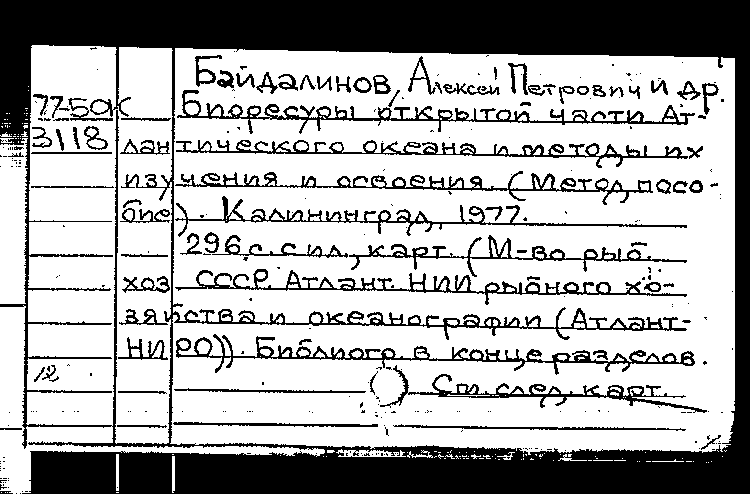 Байдалинов, Алексей Петрович и др.
77-5ак Биоресуры открытой части Ат-
3118 лантического океана и методы их
изучения и освоения. (Метод, посо-
бие). Калининград, 1977.
296 с. с ил., карт. (М-во рыб.
хоз СССР. Атлант. НИИ рыбного хо-
зяйства и океанографии (Атлант-
НИРО)). Библиогр. в конце разделов.
12 См. след. карт.